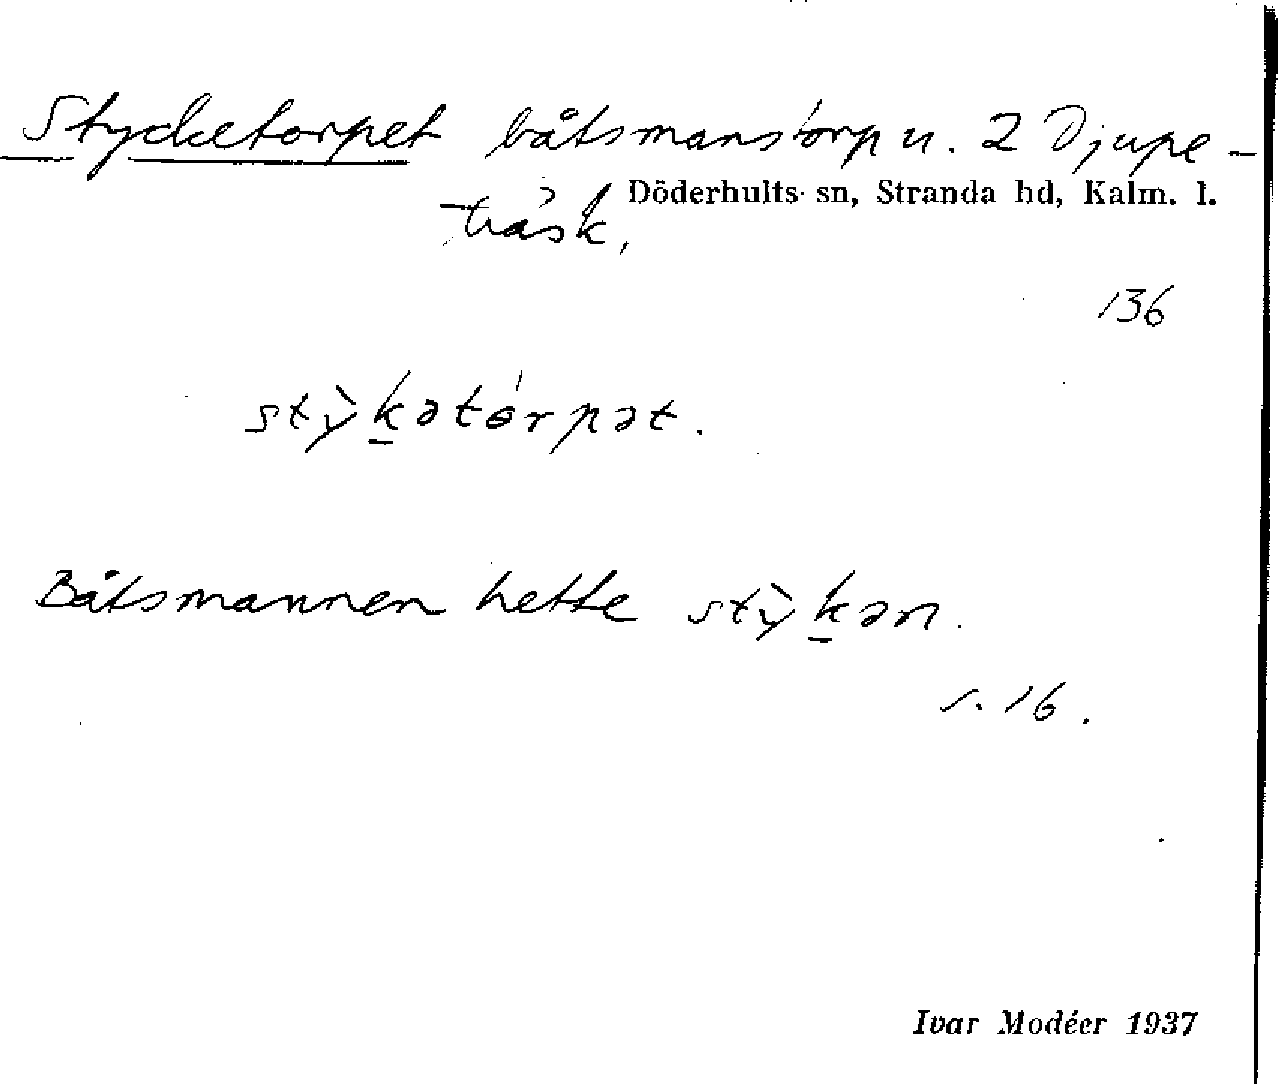 Stycketorpet båtsmanstorp u. 2 Djupe-
Döderhults sn, Stranda hd, Kalm. l.
träsk,
136
stỳk̲ətórpət.
Båtsmannen hette stỳk̲ən.
s. 16.
Ivar Modéer 1937